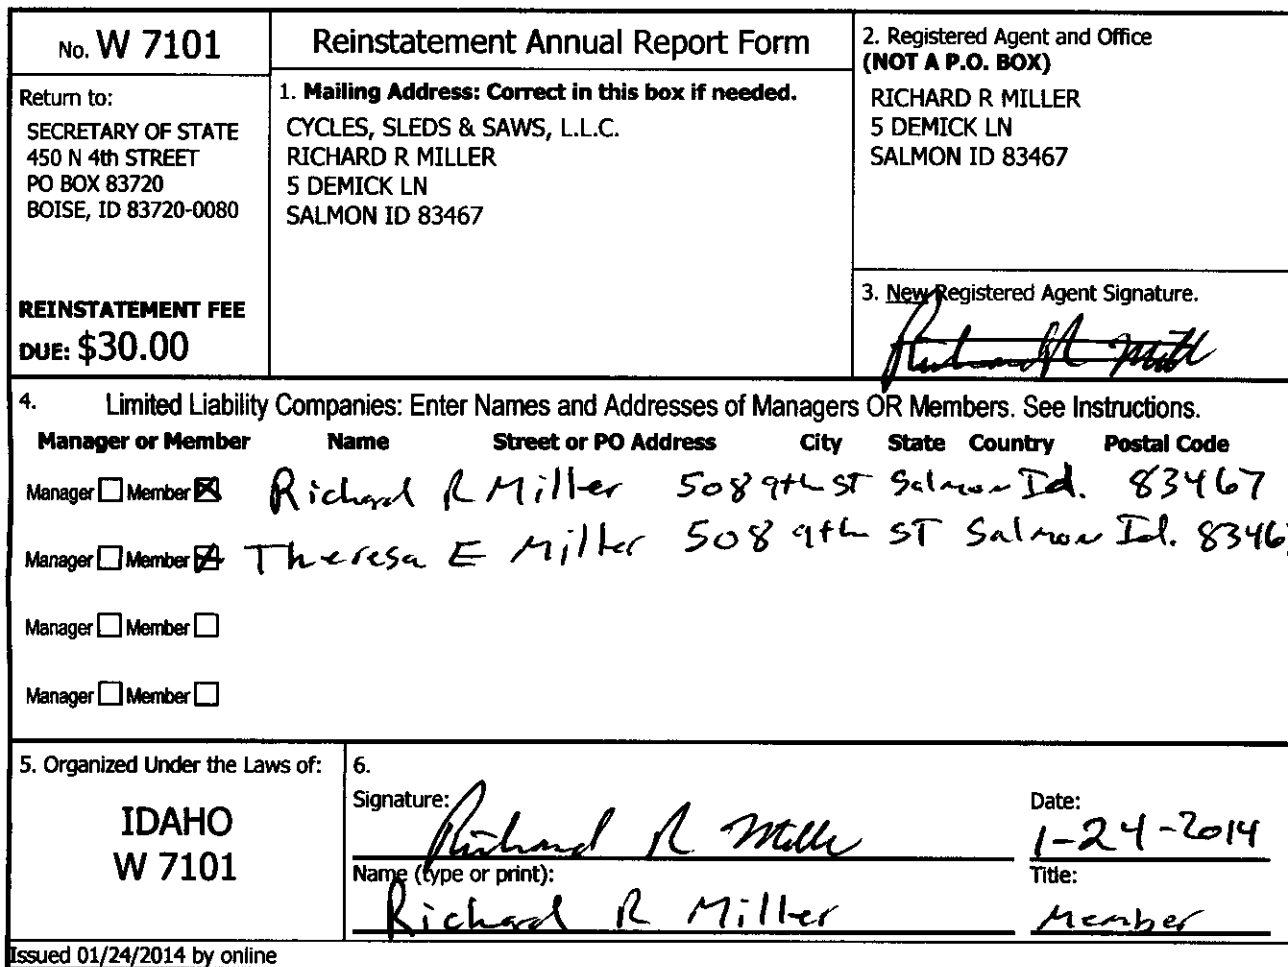 No. W 7101
Reinstatement Annual Report Form
Return to:
SECRETARY OF STATE
450 N 4th STREET
PO BOX 83720
BOISE, ID 83720-0080
REINSTATEMENT FEE
DUE: $30.00
1. Mailing Address: Correct in this box if needed.
CYCLES, SLEDS & SAWS, L.L.C.
RICHARD R MILLER
5 DEMICK LN
SALMON ID 83467
2. Registered Agent and Office
(NOT A P.O. BOX)
RICHARD R MILLER
5 DEMICK LN
SALMON ID 83467
3. New Registered Agent Signature.
Richard R Miller
4. Limited Liability Companies: Enter Names and Addresses of Managers OR Members. See Instructions.
Manager or Member Name Street or PO Address City State Country Postal Code
Manager Member Richard R Miller 508 9th ST Salmon Id. 83467
Manager Member Theresa E Miller 508 9th ST Salmon Id. 83467
Manager Member
Manager Member
5. Organized Under the Laws of:
IDAHO
W 7101
6.
Signature: Richard R Miller
Date: 1-24-2014
Name (type or print): Richard R Miller
Title: Member
Issued 01/24/2014 by online